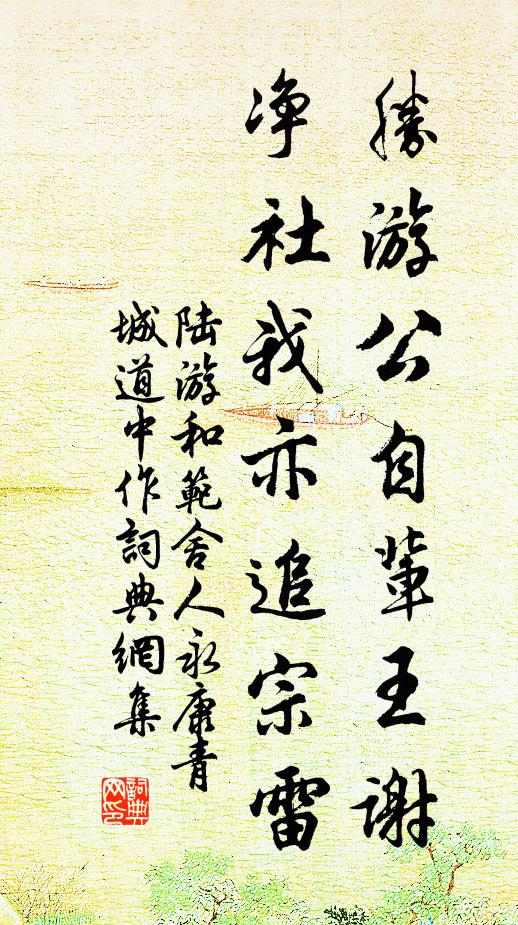 勝游公自輩王謝
净社我亦追宗雷
陆游和範舍人永康青
城道中作詞典網集
詞典网印